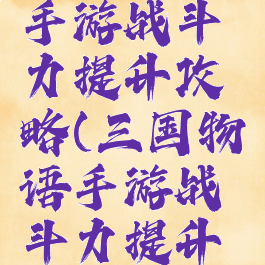 手游战斗
力提升攻
略(三国物
语手游战
斗力提升